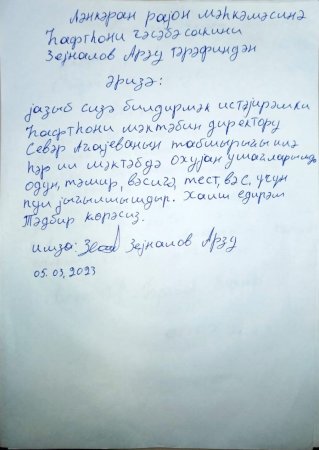 Ләнкәран рајон мәһкәмәсинә
Һафтһони гәсәбә сакини
Зејналов Арзу тәрәфиндән
әризә:
јазыб сизә билдирмәк истәјирәмки
Һафтһони мәктәбин директору
Севәр Ағајеванын табшырығы илә
һәр ил мәктәбдә охујан ушагларындан
одун, тәмир, вәсигә, тест, вә с. учун
пул јығылмышдыр. Хаиш едирәм
Тәдбир көрәсиз.
имза: Зејналов Арзу
05.03.2023